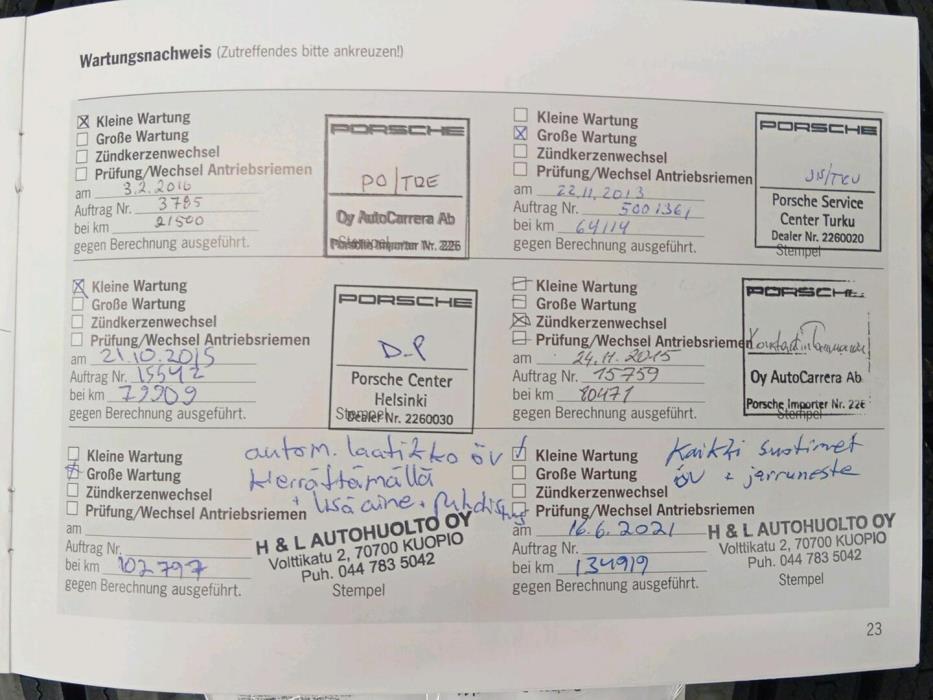 Wartungsnachweis (Zutreffendes bitte ankreuzen!)
Kleine Wartung
Große Wartung
Zündkerzenwechsel
Prüfung/Wechsel Antriebsriemen
am 3.2.2010
Auftrag Nr. 3785
bei km 21500
gegen Berechnung ausgeführt.
PORSCHE
PO/TRE
Oy AutoCarrera Ab
Porsche Importer Nr. 226
Stempel
Kleine Wartung
Große Wartung
Zündkerzenwechsel
Prüfung/Wechsel Antriebsriemen
am 22.11.2013
Auftrag Nr. 5001361
bei km 64114
gegen Berechnung ausgeführt.
PORSCHE
JN/TKU
Porsche Service
Center Turku
Dealer Nr. 2260020
Stempel
Kleine Wartung
Große Wartung
Zündkerzenwechsel
Prüfung/Wechsel Antriebsriemen
am 21.10.2015
Auftrag Nr. 15542
bei km 79909
gegen Berechnung ausgeführt.
PORSCHE
D-P
Porsche Center
Helsinki
Dealer Nr. 2260030
Stempel
Kleine Wartung
Große Wartung
Zündkerzenwechsel
Prüfung/Wechsel Antriebsriemen
am 24.11.2015
Auftrag Nr. 15759
bei km 80471
gegen Berechnung ausgeführt.
PORSCHE
Oy AutoCarrera Ab
Porsche Importer Nr. 226
Stempel
Kleine Wartung
Große Wartung
Zündkerzenwechsel
Prüfung/Wechsel Antriebsriemen
am
Auftrag Nr.
bei km 102797
gegen Berechnung ausgeführt.
autom. laatikko öv
+ lisäaine + puhdistus
H & L AUTOHUOLTO OY
Volttikatu 2, 70700 KUOPIO
Puh. 044 783 5042
Stempel
Kleine Wartung
Große Wartung
Zündkerzenwechsel
Prüfung/Wechsel Antriebsriemen
am 16.6.2021
Auftrag Nr.
bei km 134919
gegen Berechnung ausgeführt.
Kaikki suotimet
öv + jarruneste
H & L AUTOHUOLTO OY
Volttikatu 2, 70700 KUOPIO
Puh. 044 783 5042
Stempel
23